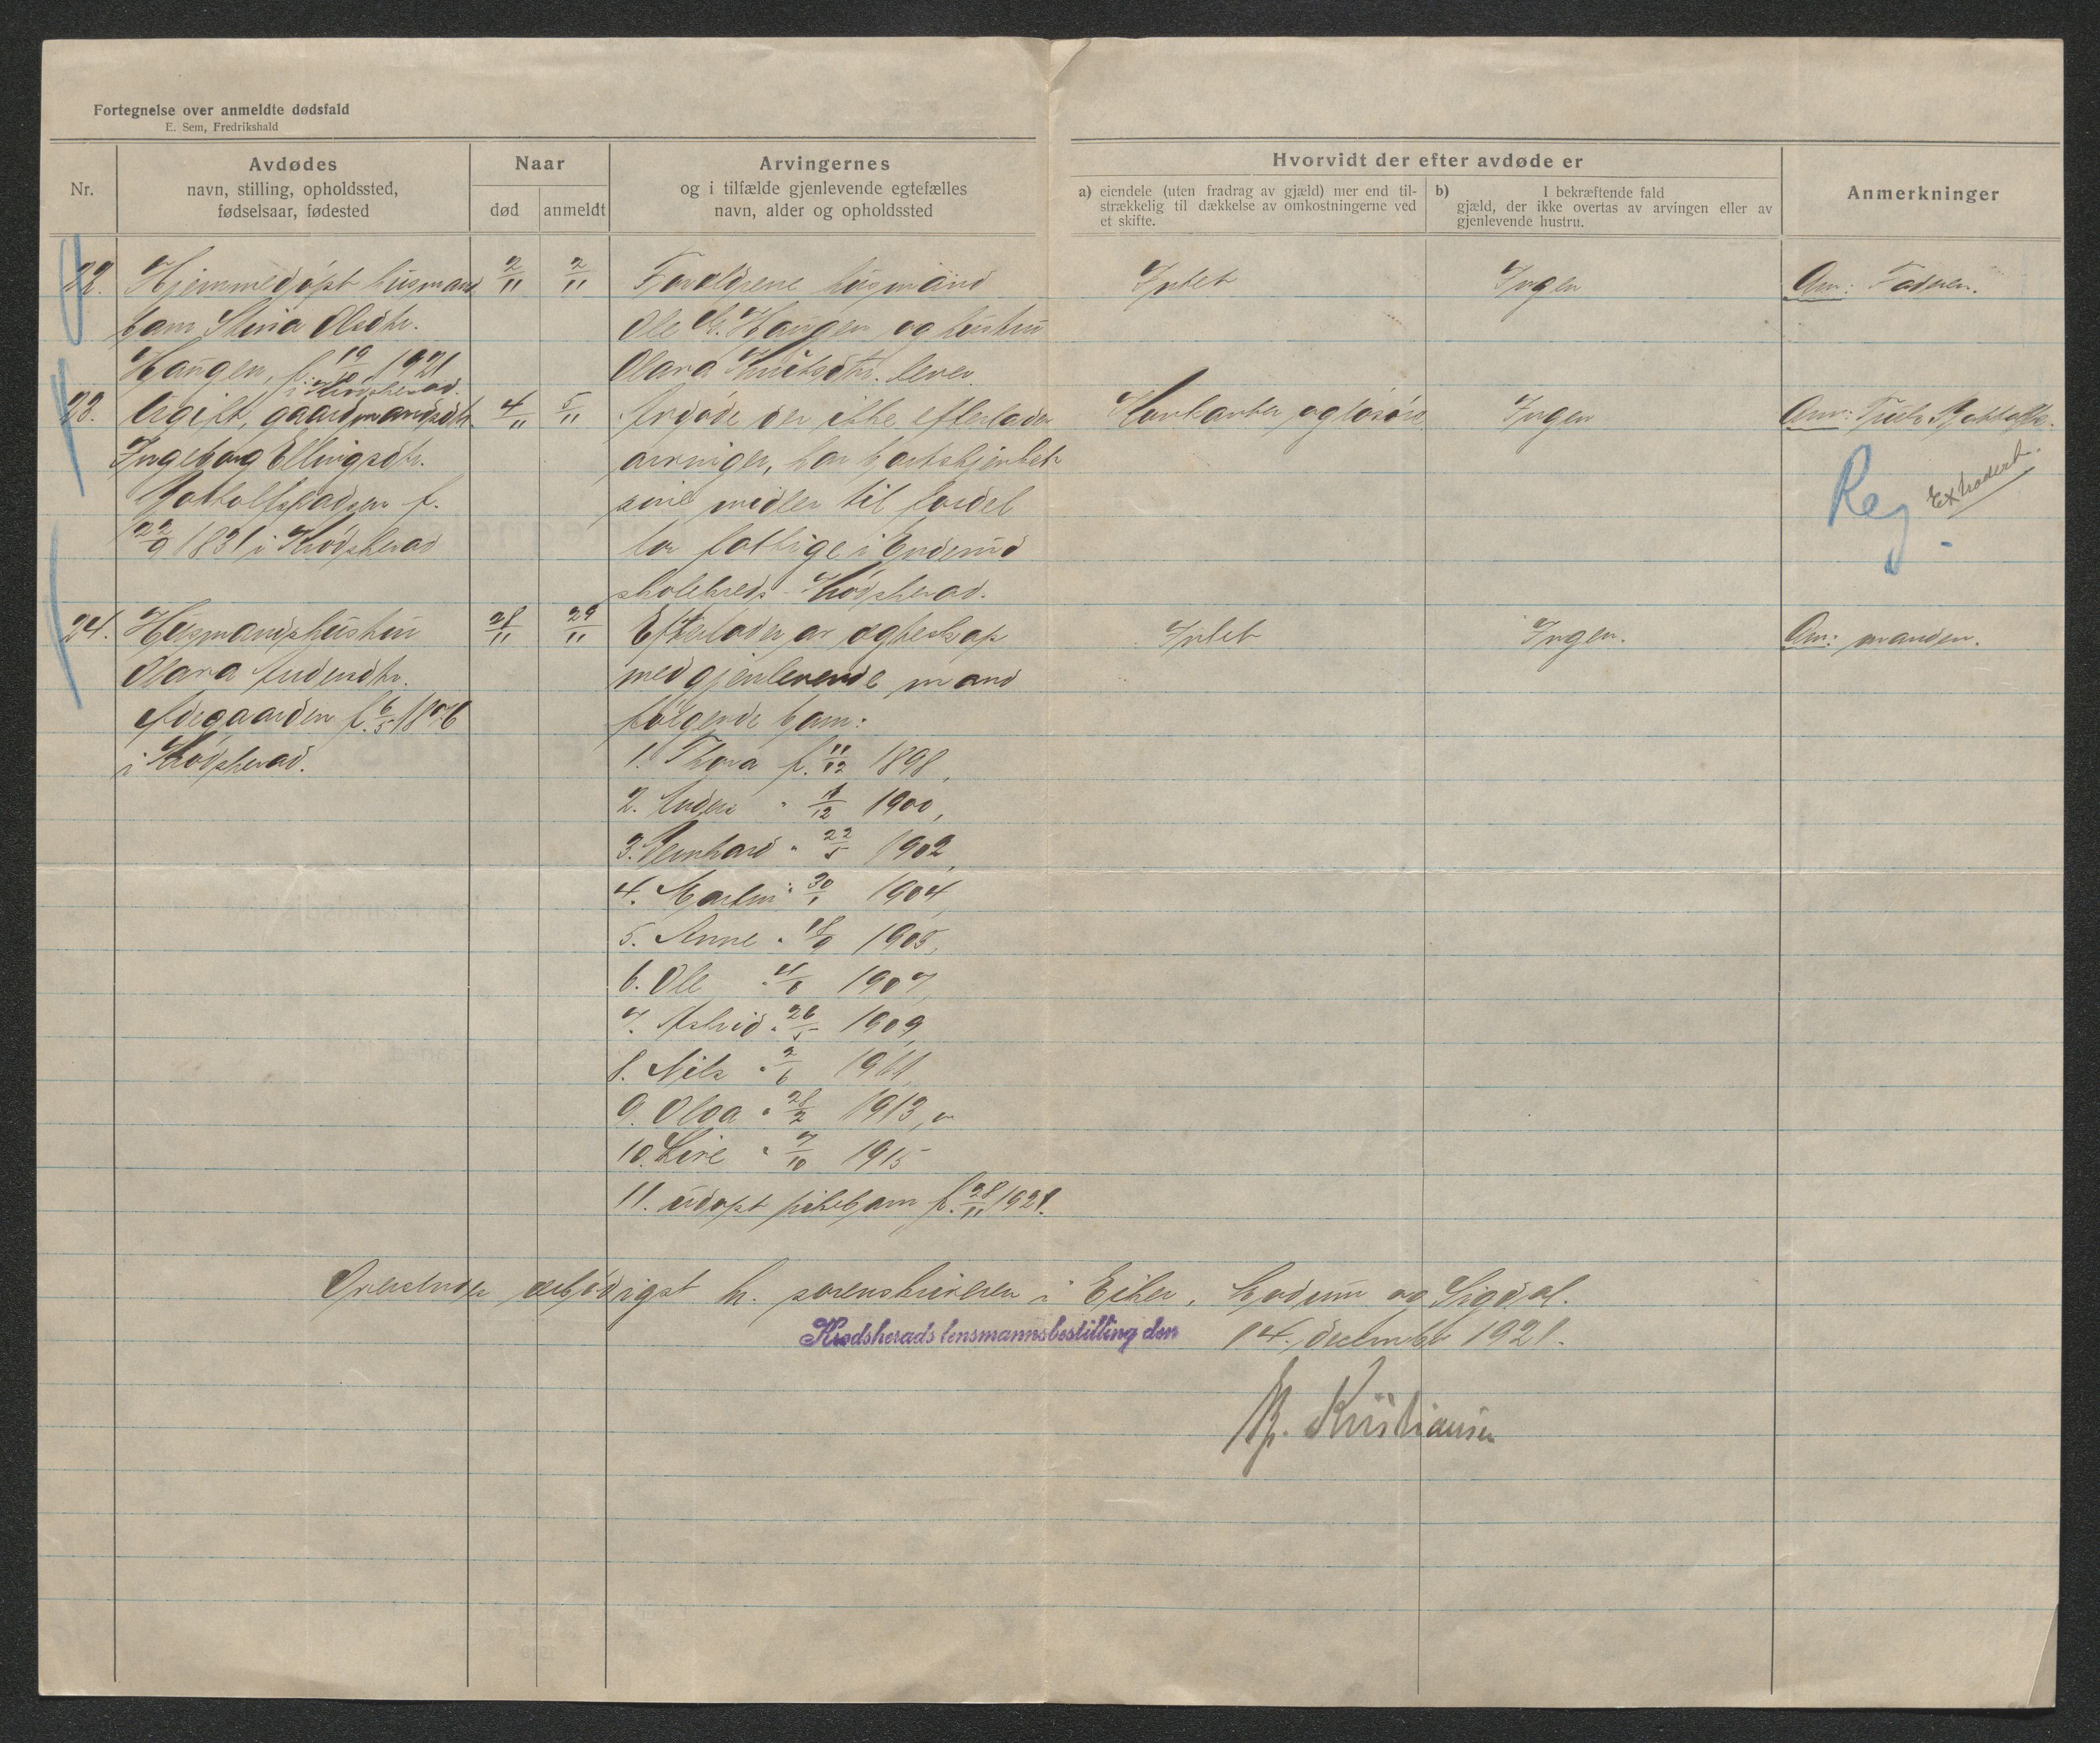 Fortegnelse over anmeldte dødsfald
E. Sem, Fredrikshald
Nr.
Avdødes
navn, stilling, opholdssted,
fødselsaar, fødested
Naar
død
anmeldt
Arvingernes
og i tilfælde gjenlevende egtefælles
navn, alder og opholdssted
Hvorvidt der efter avdøde er
a) eiendele (uten fradrag av gjæld) mer end til-
strækkelig til dækkelse av omkostningerne ved
et skifte.
b) I bekræftende fald
gjæld, der ikke overtas av arvingen eller av
gjenlevende hustru.
Anmerkninger
22. Hjemmedøpt husmand 2/11 2/11 Forældrene husmand Intet Ingen Anm: Faderen.
barn Olsdtr. Ole Haugen og hustru
Haugen, f. 19/10 1921 Olava Knutsdtr. lever
i Krødsherad
23. Ugift, gaardmandsdtr. 4/11 5/11 Avdøde der ikke efterlader Gangklær og løsøre Ingen Anm: Truls
Ingeborg Ellingsdtr. arvinger, har bortskjenket Reg Extradert.
f. sine midler til fordel
22/9 1831 i Krødsherad for fattige i Enderud
skolekreds - Krødsherad.
24. Husmandshustru 28/11 29/11 Efterlader av egteskap Intet Ingen. Anm: manden.
Olava Andersdtr. med gjenlevende mand
Ødegaarden f. 6/5 1876 følgende barn:
i Krødsherad. 1. Thora f. 11/12 1898,
2. Anders " 11/12 1900,
3. Bernhard " 22/5 1902,
4. Martin " 30/1 1904,
5. Anne " 18/9 1905,
6. Ole " 1907,
7. Astrid " 26/5 1909,
8. Nils " 2/6 1911,
9. Olga " 28/2 1913,
10. Live " 7/10 1915
11. udøpt pikebarn f. 28/11 1921.
Oversendes ærbødigst hr. sorenskriveren i Eiker, Modum og Sigdal.
Krødsherads lensmannsbestilling den 14. december 1921.
Kristiansen